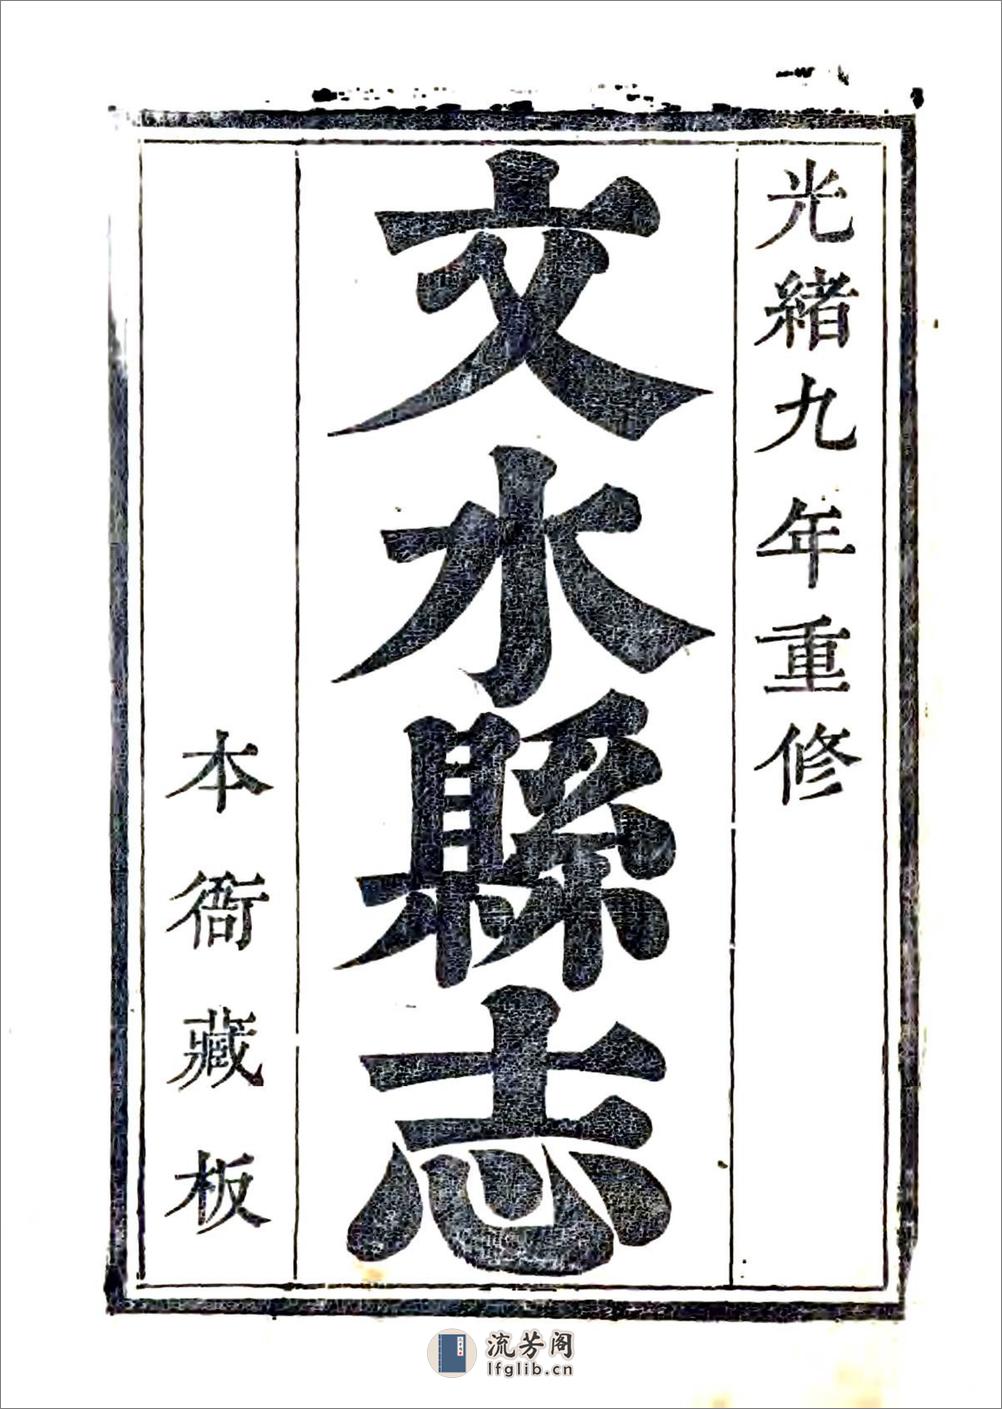 光緒九年重修
文水縣志
本衙藏板
流芳阁
lfglib.cn